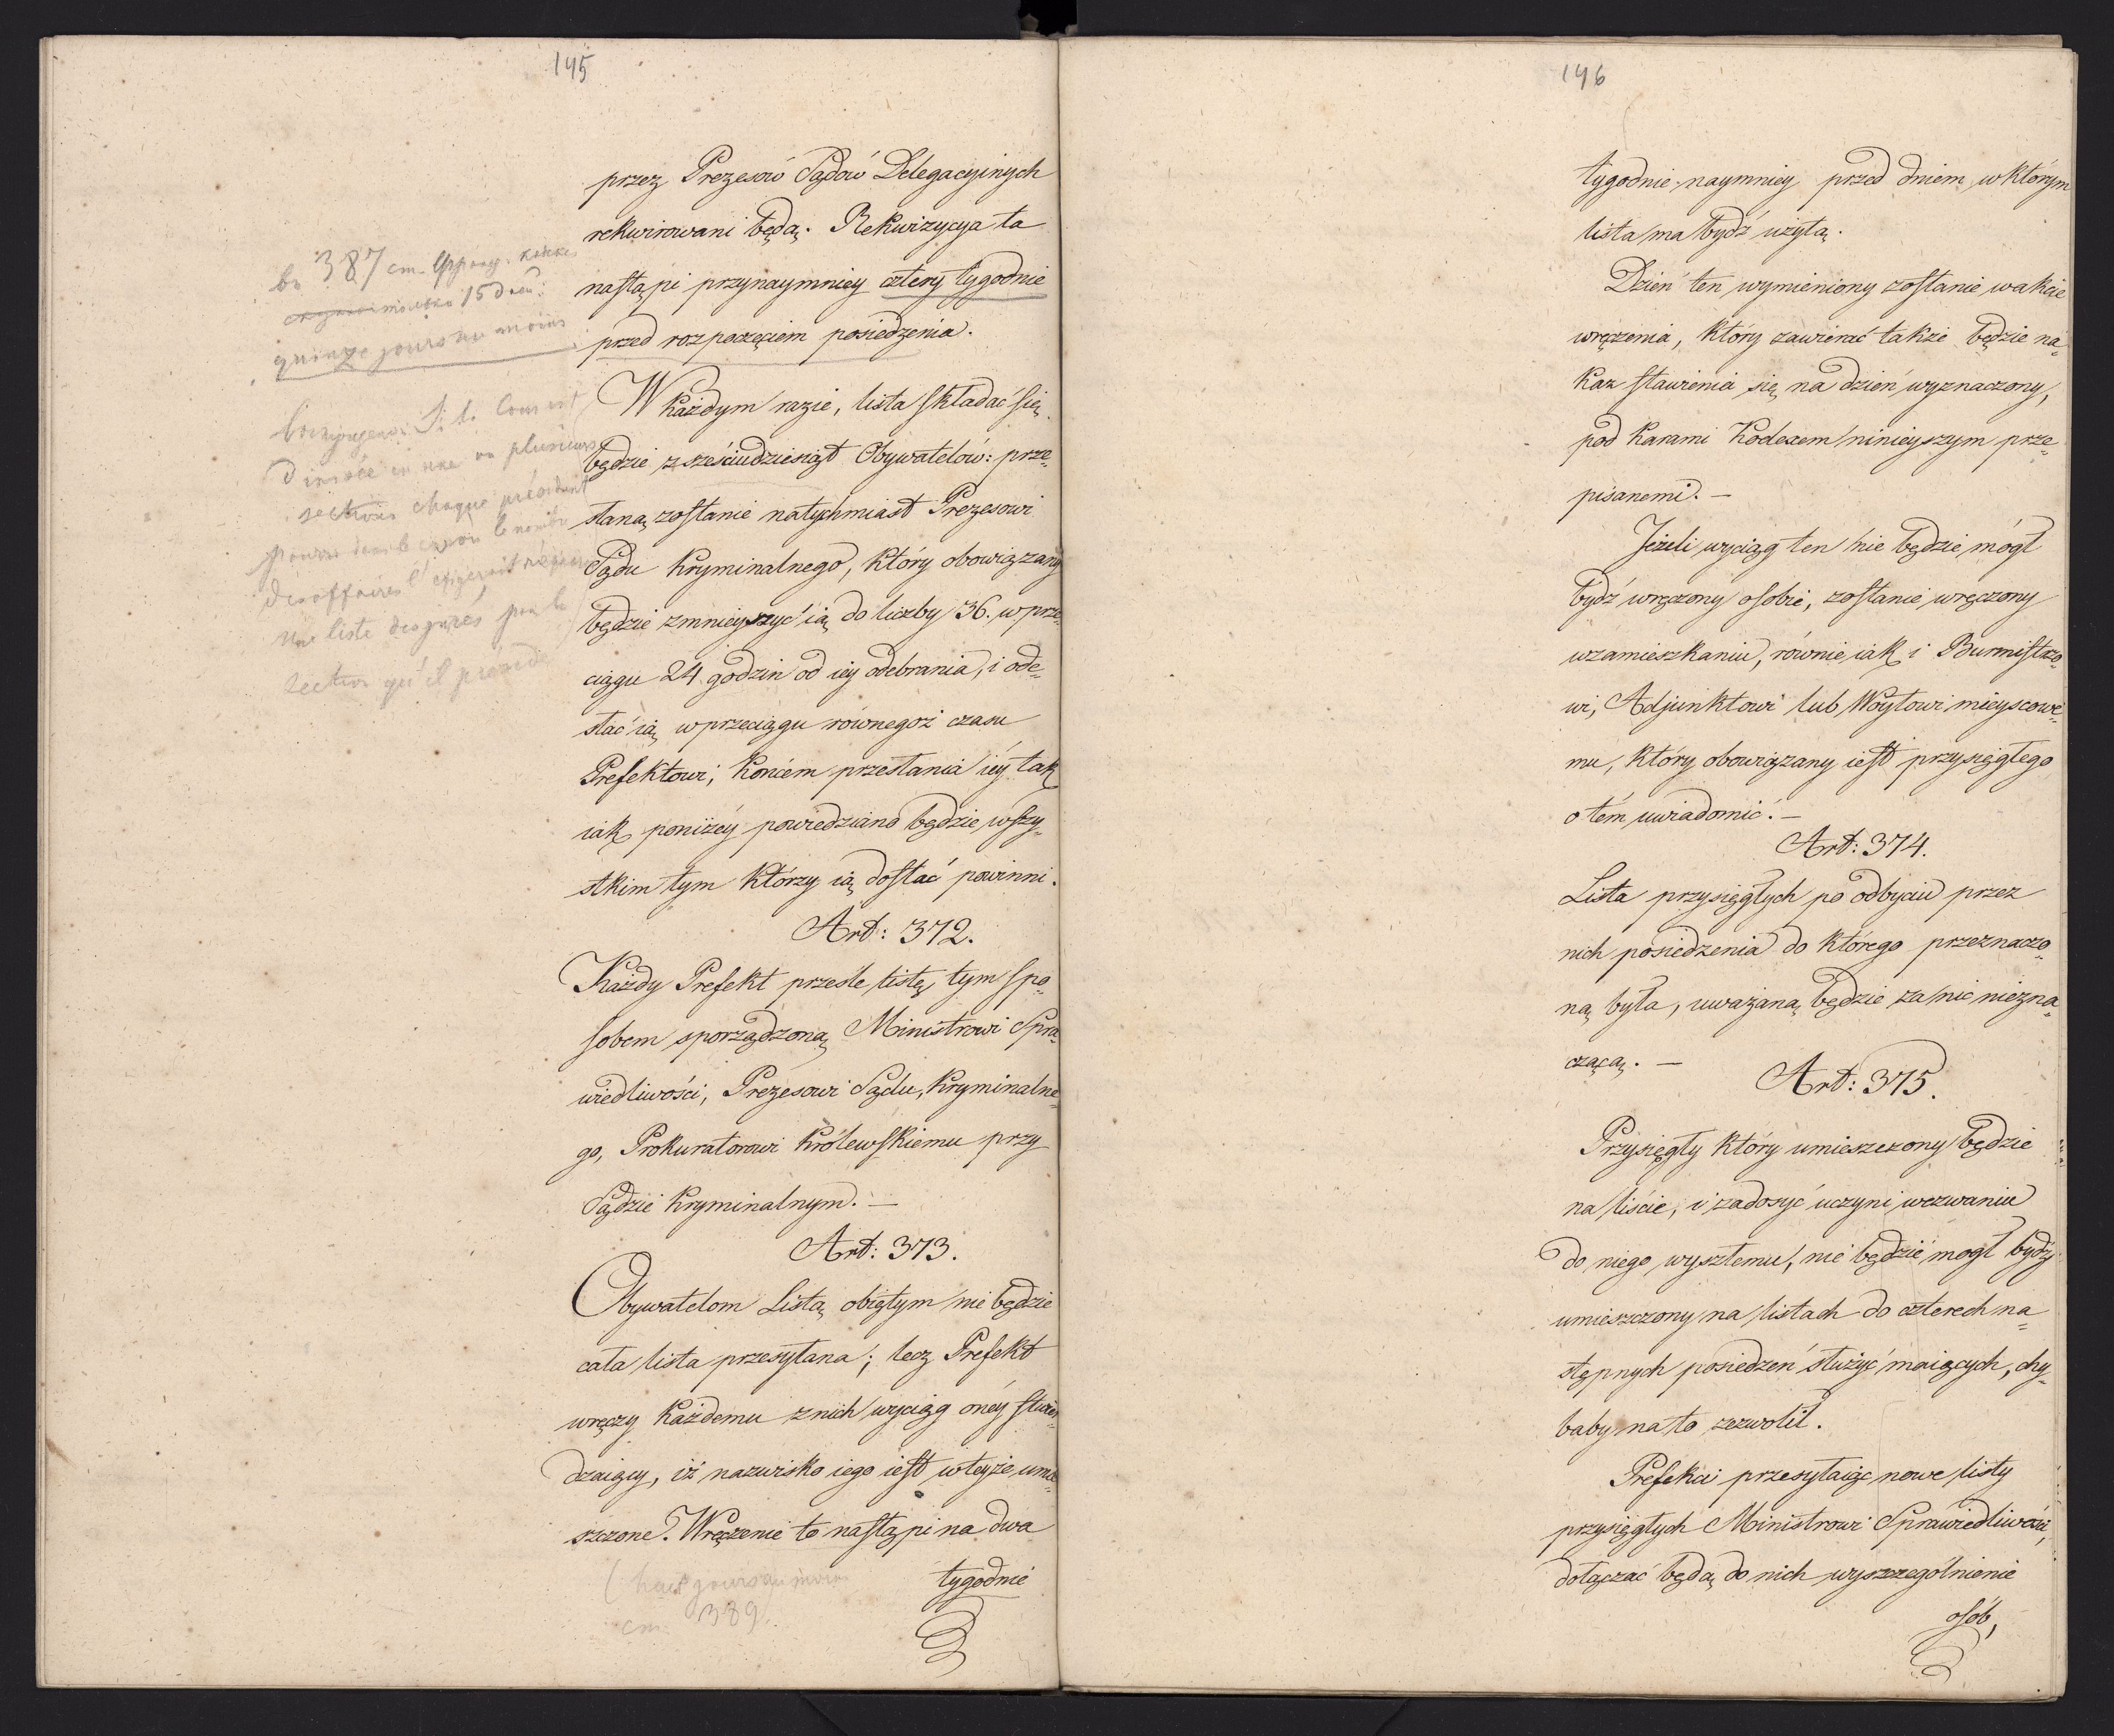 145
przez Prezesów Sądów Delegacyinych
rekwirowani będą. Rekwizycya ta
nastąpi przynaymniey cztery tygodnie
przed rozpoczęciem posiedzenia.
W każdym razie, lista składać się
będzie z sześciudziesiąt Obywatelów: prze-
słaną zostanie natychmiast Prezesowi
Sądu Kryminalnego, który obowiązany
będzie zmnieyszyć ią do liczby 36. w prze-
ciągu 24 godzin od iey odebrania, i ode-
słać ią w przeciągu równegoż czasu
Prefektowi; końcem przesłania iéy tak
iak poniżéy powiedziano będzie wszy-
stkim tym którzy ią dostać powinni.
Art: 372.
Każdy Prefekt prześle listę tym spo-
sobem sporządzoną Ministrowi Spra-
wiedliwości, Prezesowi Sądu Kryminalne-
go, Prokuratorowi Królewskiemu przy
Sądzie Kryminalnym. —
Art: 373.
Obywatelom Listą obiętym nie będzie
cała lista przesyłana; lecz Prefekt
wręczy każdemu z nich wyciąg onéy stwier-
dzaiący, iż nazwisko iego iest w teyże umie-
szczone. Wręczenie to nastąpi na dwa
tygodnie
387
15
quinze jours au moins
Si la Cour est
divisée en une ou plusieurs
sections chaque président
pourra dans le cas où le nombre
des affaires l'exigerait
une liste des jurés pour la
section qu'il préside
(huit jours au moins
389.
146
tygodnie naymniey przed dniem w którym
lista ma bydź użytą.
Dzień ten wymieniony zostanie w akcie
wręczenia, który zawierać także będzie na-
kaz stawienia się na dzień wyznaczony,
pod karami Kodexem ninieyszym prze-
pisanemi. —
Jeżeli wyciąg ten nie będzie mógł
bydź wręczony osobie, zostanie wręczony
w zamieszkaniu, równie iak i Burmistrzo-
wi, Adjunktowi lub Woytowi mieyscowe-
mu, który obowiązany iest przysięgłego
o tém uwiadomić. —
Art: 374.
Lista przysięgłych po odbyciu przez
nich posiedzenia do którego przeznaczo-
ną była, uważaną będzie za nic niezna-
czącą. —
Art: 375.
Przysięgły który umieszczony będzie
na liście, i zadosyć uczyni wezwaniu
do niego wyszłemu, nie będzie mogł bydź
umieszczony na listach do czterech na-
stępnych posiedzeń służyć maiących, chy-
baby na to zezwolił.
Prefekci przesyłaiąc nowe listy
przysięgłych Ministrowi Sprawiedliwości,
dołączać będą do nich wyszczególnienie
osób,